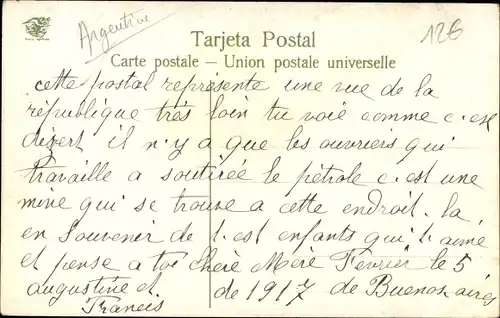 Argentine
12€
Tarjeta Postal
Carte postale — Union postale universelle
cette postal représente une vue de la
république très loin tu voie comme c.est
désert il n'y a que les ouvriers qui
travaille a soutirée le pétrole c.est une
mine qui se trouve a cette endroit. la
en Souvenir de t.est enfants qui t.aime
et pense a toi chère Mère Fevrier le 5
augustine et de 1917 de Buenos.aires
Francis